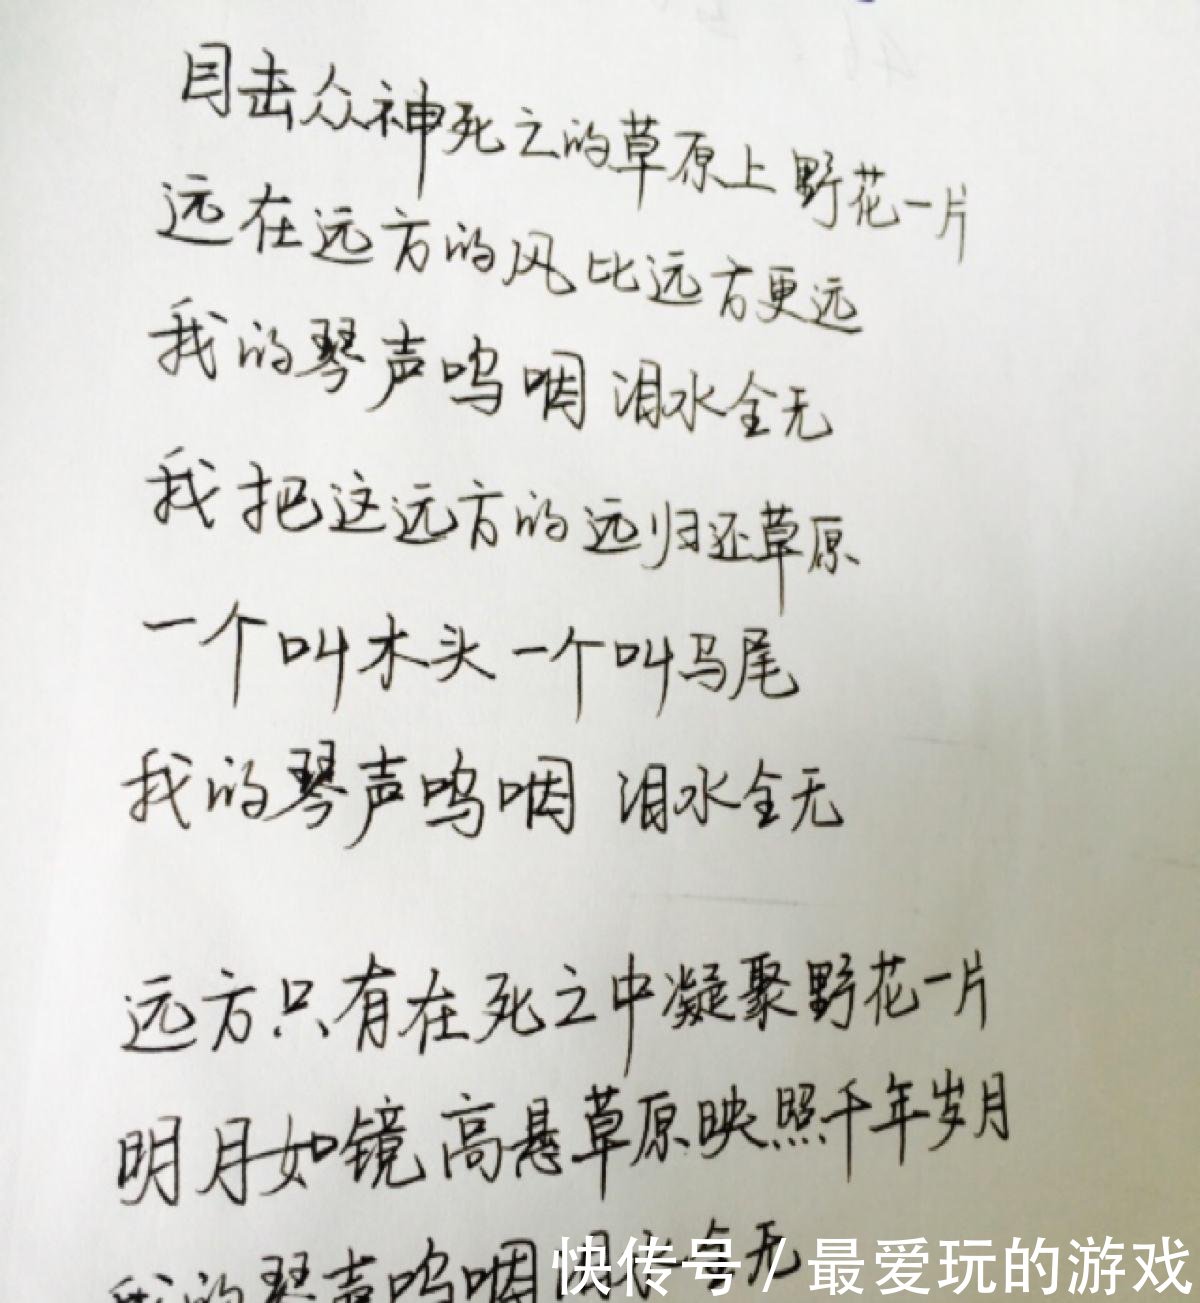 目击众神死亡的草原上野花一片
远在远方的风比远方更远
我的琴声呜咽 泪水全无
我把这远方的远归还草原
一个叫木头 一个叫马尾
我的琴声呜咽 泪水全无
远方只有在死亡中凝聚野花一片
明月如镜高悬草原映照千年岁月
我的琴声呜咽 泪水全无
快传号/最爱玩的游戏